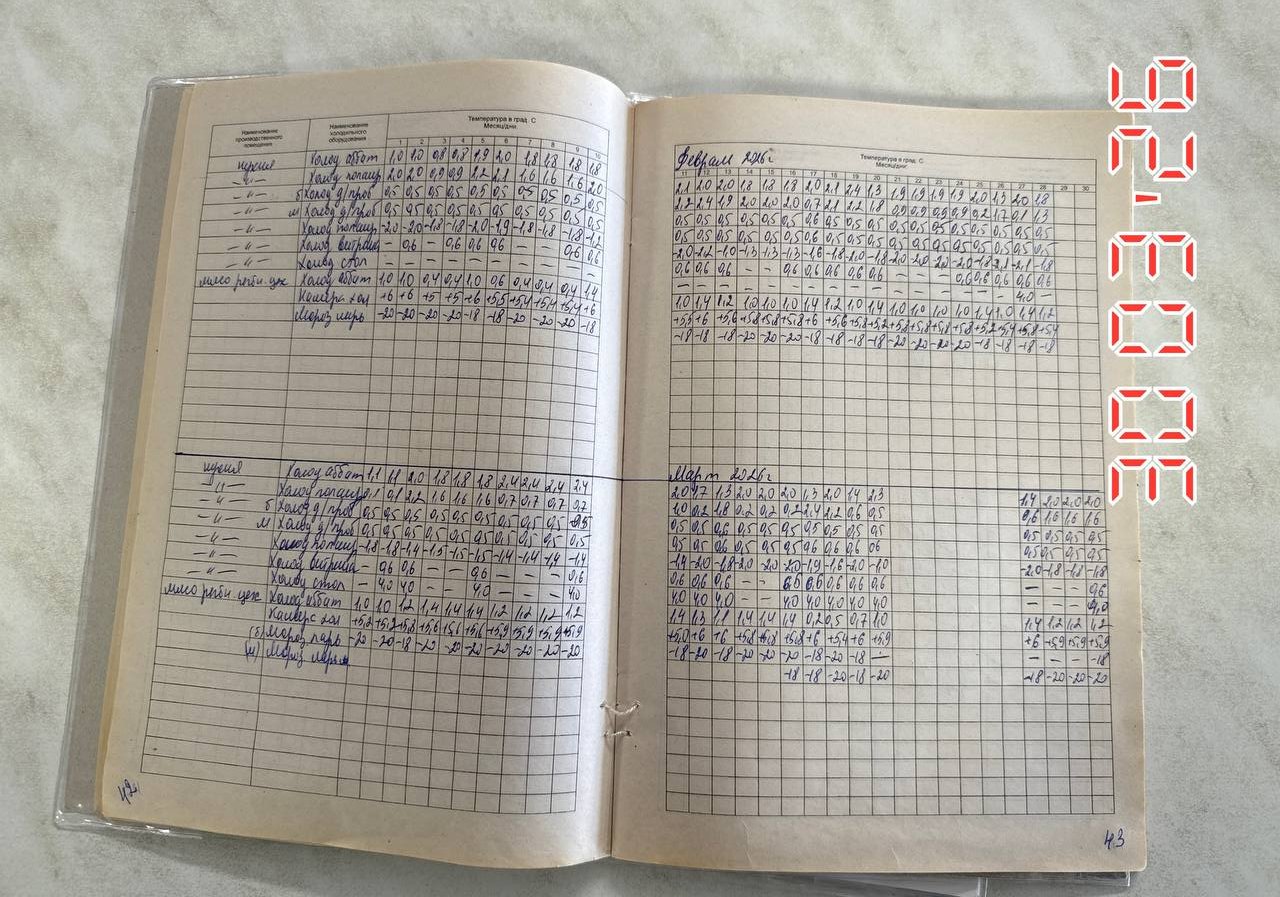 Наименование производственного помещения
Наименование холодильного оборудования
Температура в град. С
Месяц/дни.
1 2 3 4 5 6 7 8 9 10
кухня Холод аббат 1,0 1,0 0,8 0,8 1,9 2,0 1,8 1,8 1,8 1,8
-"- 2,0 2,0 0,9 0,9 2,2 2,1 1,6 1,6 1,6 2,0
-"- б Холод д/проб 0,5 0,5 0,5 0,5 0,5 0,5 0,5 0,5 0,5 0,5
-"- м Холод д/проб 0,5 0,5 0,5 0,5 0,5 0,5 0,5 0,5 0,5 0,5
-"- Холод -20 -20 -1,8 -1,8 -2,0 -1,9 -1,8 -1,8 -1,8 -1,2
-"- Холод витрина – 0,6 – 0,6 0,6 0,6 – – 0,6 0,6
-"- Холод стол – – – – – – – – – –
Холод аббат 1,0 1,0 0,4 0,4 1,0 0,6 0,4 0,4 0,4 1,4
Камера хол +6 +6 +5 +5 +6 +5,5 +5,4 +5,4 +5,4 +6
Мороз ларь -20 -20 -20 -20 -18 -18 -20 -20 -20 -18
кухня Холод аббат 1,1 1,1 2,0 1,8 1,8 1,8 2,4 2,4 2,4 2,4
-"- 0,1 0,1 2,2 1,6 1,6 1,6 0,7 0,7 0,7 0,7
-"- б Холод д/проб 0,5 0,5 0,5 0,5 0,5 0,5 0,5 0,5 0,5 0,5
-"- м Холод д/проб 0,5 0,5 0,5 0,5 0,5 0,5 0,5 0,5 0,5 0,5
-"- Холод -1,8 -1,8 -1,4 -1,5 -1,5 -1,5 -1,4 -1,4 -1,4 -1,4
-"- Холод витрина – 0,6 0,6 – – 0,6 – – – 0,6
-"- Холод стол – 4,0 4,0 – – 4,0 – – – 4,0
Холод аббат 1,0 1,0 1,2 1,4 1,4 1,4 1,2 1,2 1,2 1,2
Камера хол +5,2 +5,2 +5,8 +5,6 +5,6 +5,6 +5,9 +5,9 +5,9 +5,9
(б) Мороз ларь -20 -20 -18 -20 -20 -20 -20 -20 -20 -20
(м) Мороз ларь м
42
Февраль 2026г
Температура в град. С
Месяц/дни.
11 12 13 14 15 16 17 18 19 20 21 22 23 24 25 26 27 28 29 30
2,1 2,0 2,0 1,8 1,8 1,8 2,0 2,1 2,4 1,3 1,9 1,9 1,9 1,9 2,0 1,3 2,0 1,8
2,2 2,4 1,9 2,0 2,0 2,0 0,7 2,1 1,2 1,8 0,9 0,9 0,9 0,9 0,2 1,7 0,1 1,3
0,5 0,5 0,5 0,5 0,5 0,5 0,6 0,5 0,5 0,5 0,5 0,5 0,5 0,5 0,5 0,5 0,5 0,5
0,5 0,5 0,5 0,5 0,5 0,5 0,6 0,5 0,5 0,5 0,5 0,5 0,5 0,5 0,5 0,5 0,5 0,5
0,6 0,6 0,6 – – 0,6 0,6 0,6 0,6 0,6 – – – – 0,6 0,6 0,6 0,6 0,6
4,0 –
1,0 1,4 1,2 1,0 1,0 1,0 1,4 1,2 1,0 1,4 1,0 1,0 1,0 1,0 1,4 1,0 1,4 1,2
+5,5 +6 +5,6 +5,8 +5,8 +5,8 +6 +5,6 +5,8 +5,2 +5,8 +5,8 +5,8 +5,8 +5,2 +5,4 +5,8 +5,4
-18 -18 -18 -20 -20 -20 -18 -18 -18 -18 -20 -20 -20 -20 -18 -18 -18 -18
Март 2026г
2,0 1,7 1,3 2,0 2,0 2,0 1,3 2,0 1,4 2,3 1,4 2,0 2,0 2,0
1,0 0,2 1,8 0,2 0,2 0,2 2,4 1,2 0,6 0,5 0,6 1,6 1,6 1,6
0,5 0,5 0,6 0,5 0,5 0,5 0,5 0,5 0,5 0,5 0,5 0,5 0,5 0,5
0,5 0,5 0,6 0,5 0,5 0,5 0,6 0,6 0,6 0,6 0,5 0,5 0,5 0,5
-1,4 -2,0 -1,8 -2,0 -2,0 -2,0 -1,9 -1,6 -2,0 -1,0 -2,0 -1,8 -1,8 -1,8
0,6 0,6 0,6 – – 0,5 0,6 0,6 0,6 0,6 – – – 0,6
4,0 4,0 4,0 – – 4,0 4,0 4,0 4,0 4,0 – – – 4,0
1,4 1,3 1,1 1,4 1,4 1,4 0,2 0,5 0,7 1,0 1,4 1,2 1,2 1,2
+5,0 +6 +6 +5,8 +5,8 +5,8 +6 +5,4 +6 +5,9 +6 +5,9 +5,9 +5,9
-18 -20 -18 -20 -20 -20 -18 -20 -18 – – – – -18
-18 -18 -20 -18 -20 -18 -20 -20 -20
43
30.03.26